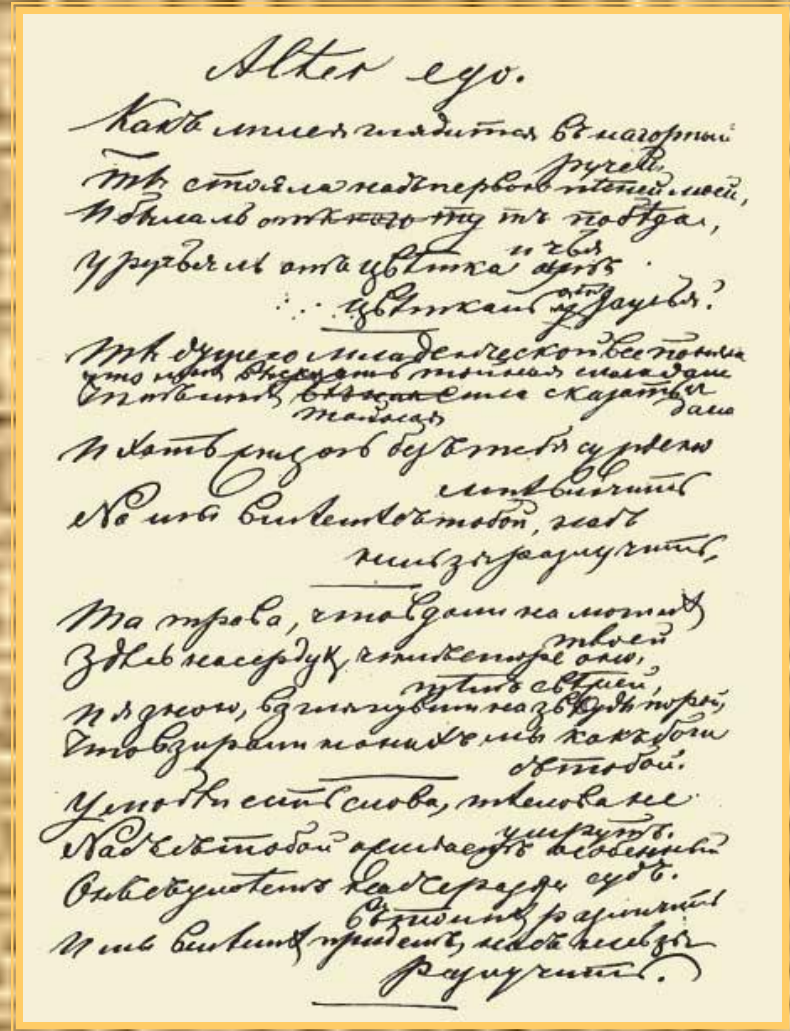 Alter ego.
Какъ лилея глядится въ нагорный
ручей,
Ты стояла надъ первою пѣсней моей,
И была ль тутъ побѣда,
и чья
У ручья ль отъ цвѣтка
цвѣтка ль отъ ручья?
Ты душею младенческой все поняла
Что мнѣ высказать тайная сила дала
тайная
сила сказать
дала
И хоть жизнь безъ тебя суждено
мнѣ влачить
Но мы вмѣстѣ съ тобой, насъ
нельзя разлучить.
Та трава, что вдали на могилѣ
твоей
Здѣсь на сердцѣ, чѣмъ старе оно,
тѣмъ свѣжей,
И я знаю, взглянувши на звѣзды порой,
Что взирали на нихъ мы какъ боги
съ тобой.
У любви есть слова, тѣ слова не
умрутъ.
Насъ съ тобой ожидаетъ особенный
судъ.
Онъ съумѣетъ насъ сразу
въ толпѣ различить
И мы вмѣстѣ придемъ, насъ нельзя
разлучить.